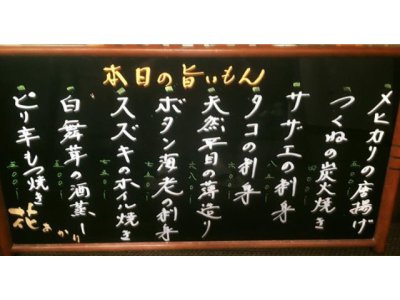 本日の旨いもん
メヒカリの唐揚げ
つくねの炭火焼き
サザエの刺身
タコの刺身
天然平目の薄造り
ボタン海老の刺身
スズキのホイル焼き
白舞茸の酒蒸し
ピリ辛もつ焼き
花あかり